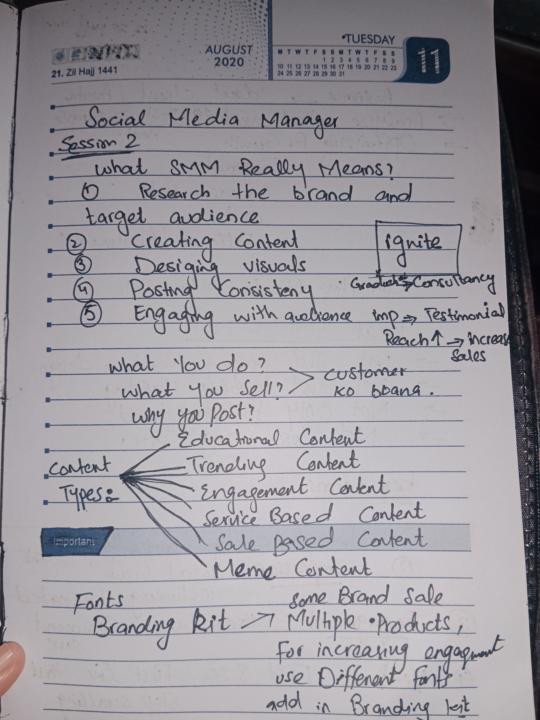 AUGUST
2020
21. Zil Hajj 1441
•TUESDAY
M T W T F S S M T W T F S S
1 2 3 4 5 6 7 8 9
10 11 12 13 14 15 16 17 18 19 20 21 22 23
24 25 26 27 28 29 30 31
11
Social Media Manager
Session 2
what SMM Really Means?
① Research the brand and
target audience
② Creating Content
③ Desiging visuals
④ Posting Consisteny
⑤ Engaging with audience
ignite
Consultancy
imp ⇒ Testimonial
Reach↑ → increas
Sales
what You do?
what You Sell? > customer
why you Post? ko btana.
Content Types:-
Educational Content
Trending Content
Engagement Content
Service Based Content
Sale Based Content
Important
Meme Content
Fonts
Branding kit → some Brand Sale
Multiple •Products,
For increasing engagment
use Different fonts
add in Branding kit